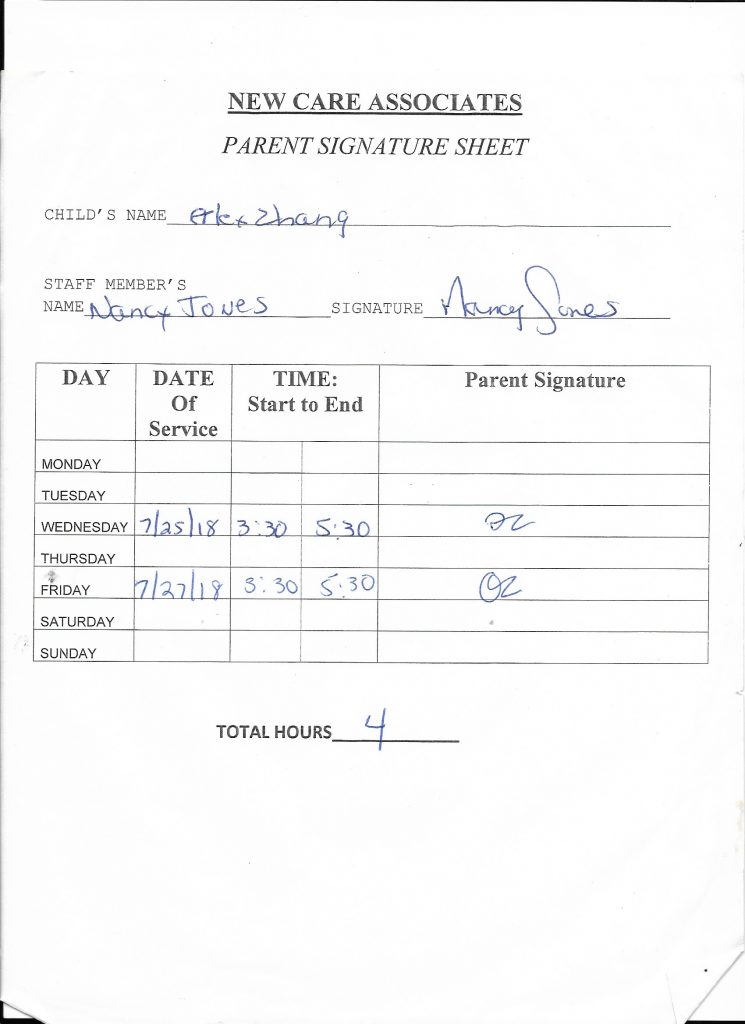 NEW CARE ASSOCIATES
PARENT SIGNATURE SHEET
CHILD'S NAME Zhang
STAFF MEMBER'S
NAME Nancy Jones SIGNATURE Nancy Jones
DAY DATE Of Service TIME: Start to End Parent Signature
MONDAY
TUESDAY
WEDNESDAY 7/25/18 3:30 5:30
THURSDAY
FRIDAY 7/27/18 3:30 5:30
SATURDAY
SUNDAY
TOTAL HOURS 4